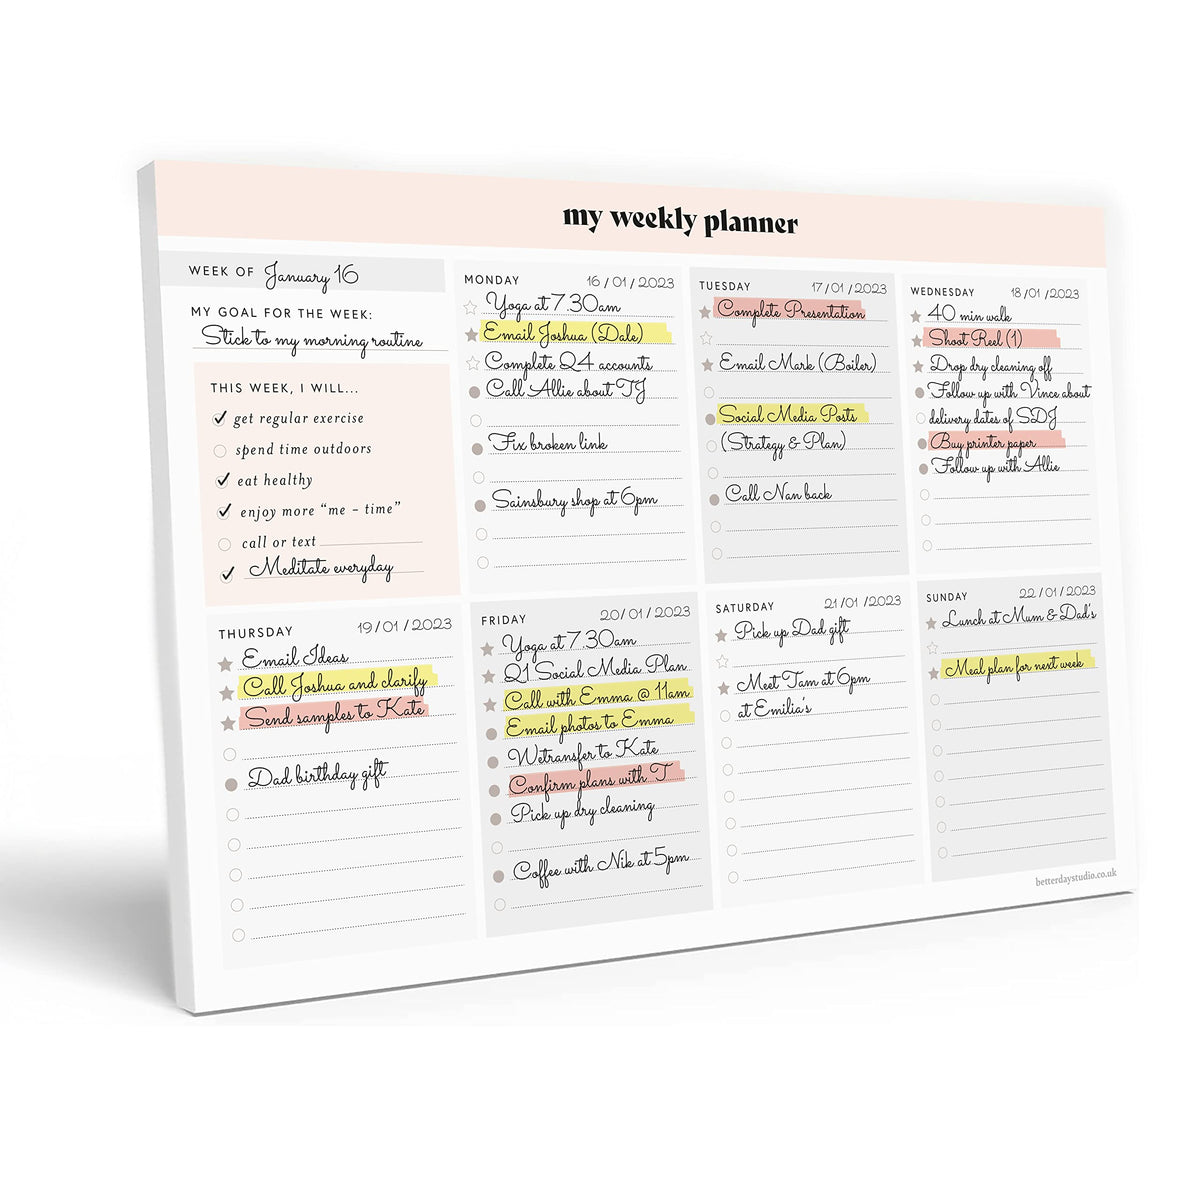 my weekly planner
WEEK OF January 16
MY GOAL FOR THE WEEK:
Stick to my morning routine
THIS WEEK, I WILL...
get regular exercise
spend time outdoors
eat healthy
enjoy more “me – time”
call or text
Meditate everyday
MONDAY 16/01/2023
Yoga at 7.30am
Email Joshua (Dale)
Complete Q4 accounts
Call Allie about TJ
Fix broken link
Sainsbury shop at 6pm
TUESDAY 17/01/2023
Complete Presentation
Email Mark (Boiler)
Social Media Posts
(Strategy & Plan)
Call Nan back
WEDNESDAY 18/01/2023
40 min walk
Shoot Reel (1)
Drop dry cleaning off
Follow up with Vince about
delivery dates of SDJ
Buy printer paper
Follow up with Allie
THURSDAY 19/01/2023
Email Ideas
Call Joshua and clarify
Send samples to Kate
Dad birthday gift
FRIDAY 20/01/2023
Yoga at 7.30am
Q1 Social Media Plan
Call with Emma @ 11am
Email photos to Emma
Wetransfer to Kate
Confirm plans with T
Pick up dry cleaning
Coffee with Nik at 5pm
SATURDAY 21/01/2023
Pick up Dad gift
Meet Tam at 6pm
at Emilia's
SUNDAY 22/01/2023
Lunch at Mum & Dad's
Meal plan for next week
betterdaystudio.co.uk